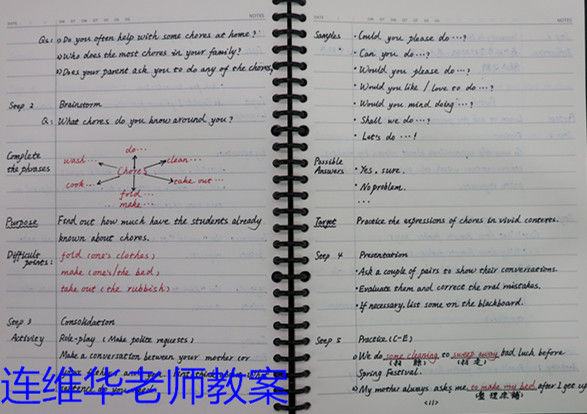 NOTES
Qs: ⓐ Do you often help with some chores at home?
ⓑ Who does the most chores in your family?
ⓒ Does your parent ask you to do any of the chores,
Step 2 Brainstorm
Q: What chores do you know around you?
Complete the phrases
do...
wash...
clean...
Chores
cook...
take out...
fold...
make...
Purpose Find out how much have the students already
known about chores.
Difficult points: fold (one's clothes)
make (one's/the bed)
take out (the rubbish)
Step 3 Consolidation
Activity Role-play (Make polite requests)
Make a conversation between your mother (or
连维华老师教案
NOTES
Samples · Could you please do ...?
· Can you do ...?
· Would you please do ...?
· Would you like / love to do ...?
· Would you mind doing ...?
· Shall we do ...?
· Let's do ...!
Possible Answers · Yes, sure.
· No problem.
...
Target Practice the expressions of chores in vivid contexts.
Step 4 Presentation
· Ask a couple of pairs to show their conversations.
· Evaluate them and correct the oral mistakes.
· If necessary, list some on the blackboard.
Step 5 Practice (C-E)
ⓐ We do some cleaning to sweep away bad luck before
Spring Festival.
ⓑ My mother always asks me to make my bed after I get up
(整理床铺)